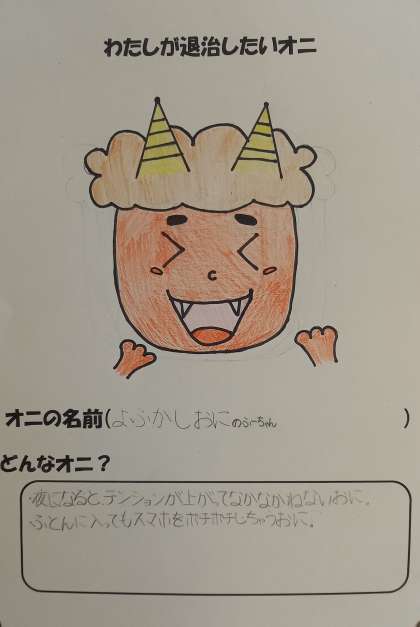 わたしが退治したいオニ
オニの名前(よふかしおにのふーちゃん)
どんなオニ？
夜になると、テンションが上がってなかなかねないおに。
ふとんに入ってもスマホをポチポチしちゃうおに。